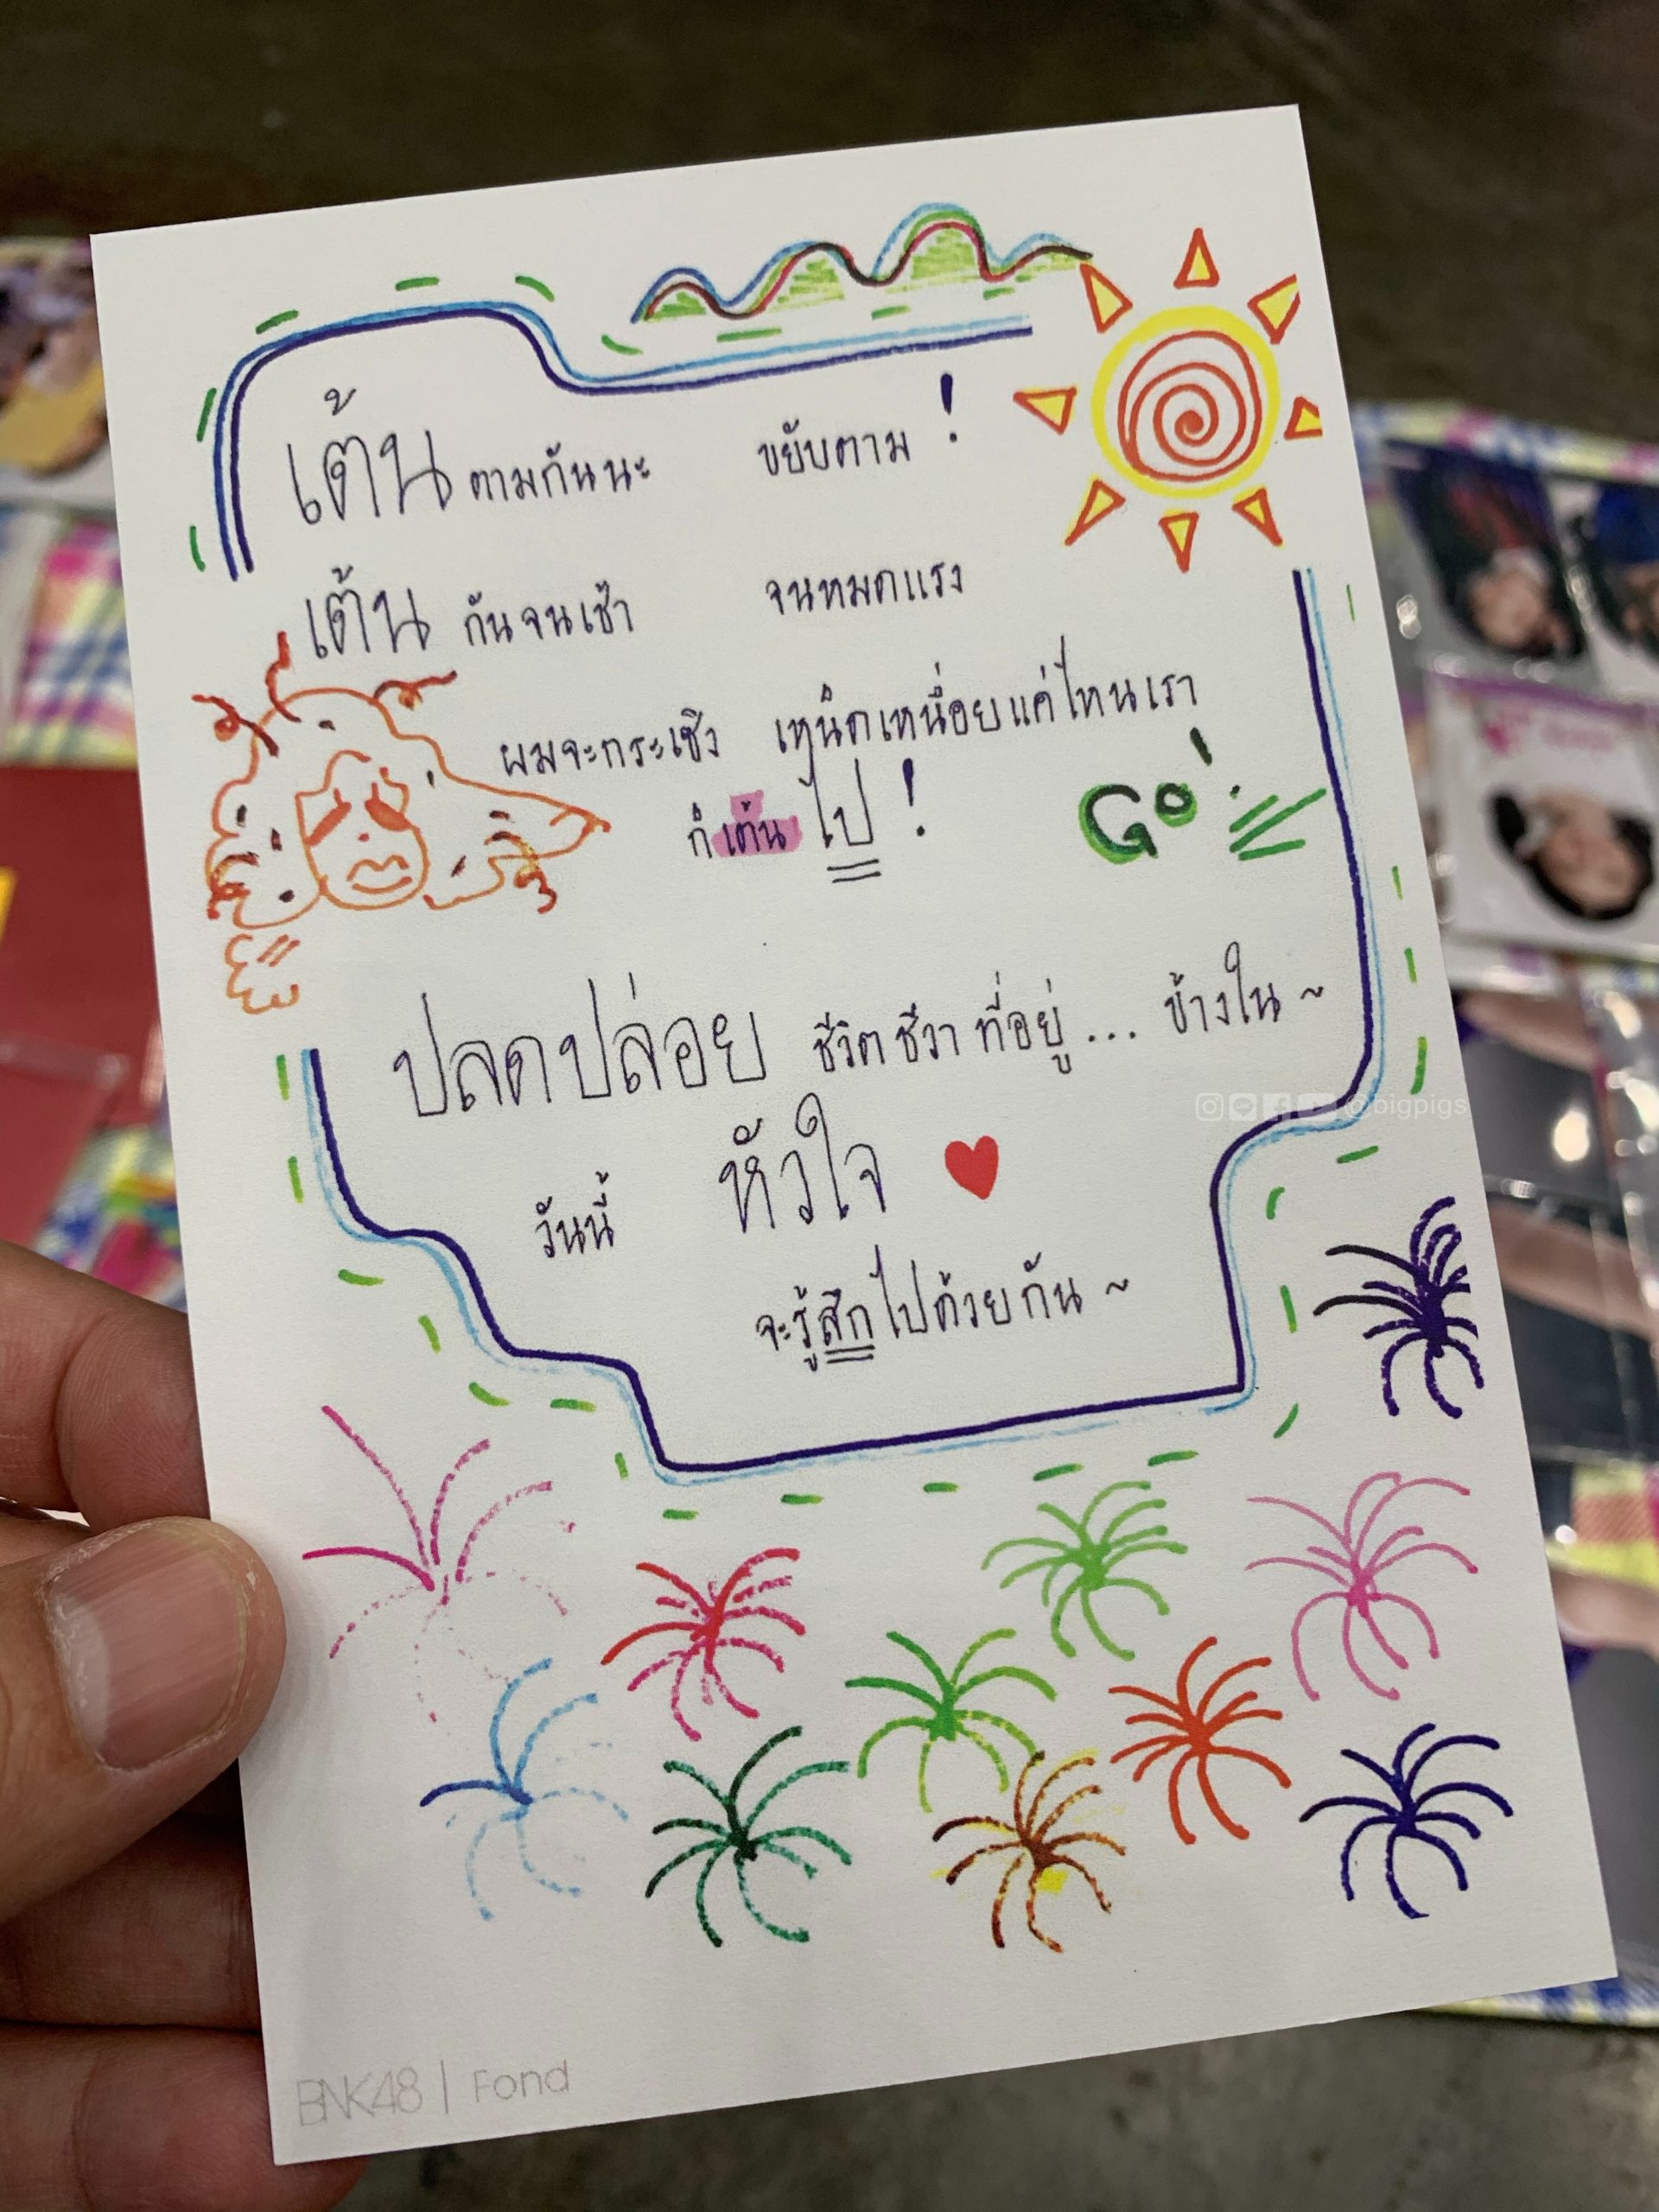 เต้น ตามกันนะ ขยับตาม !
เต้น กันจนเช้า จนหมดแรง
ผมจะกระเซิง เหน็ดเหนื่อยแค่ไหนเรา
ก็เต้นไป !
Go!
ปลดปล่อย ชีวิตชีวา ที่อยู่ ... ข้างใน ~
@bigpigs
วันนี้ หัวใจ
จะรู้สึกไปด้วยกัน ~
BNK48 | Fond